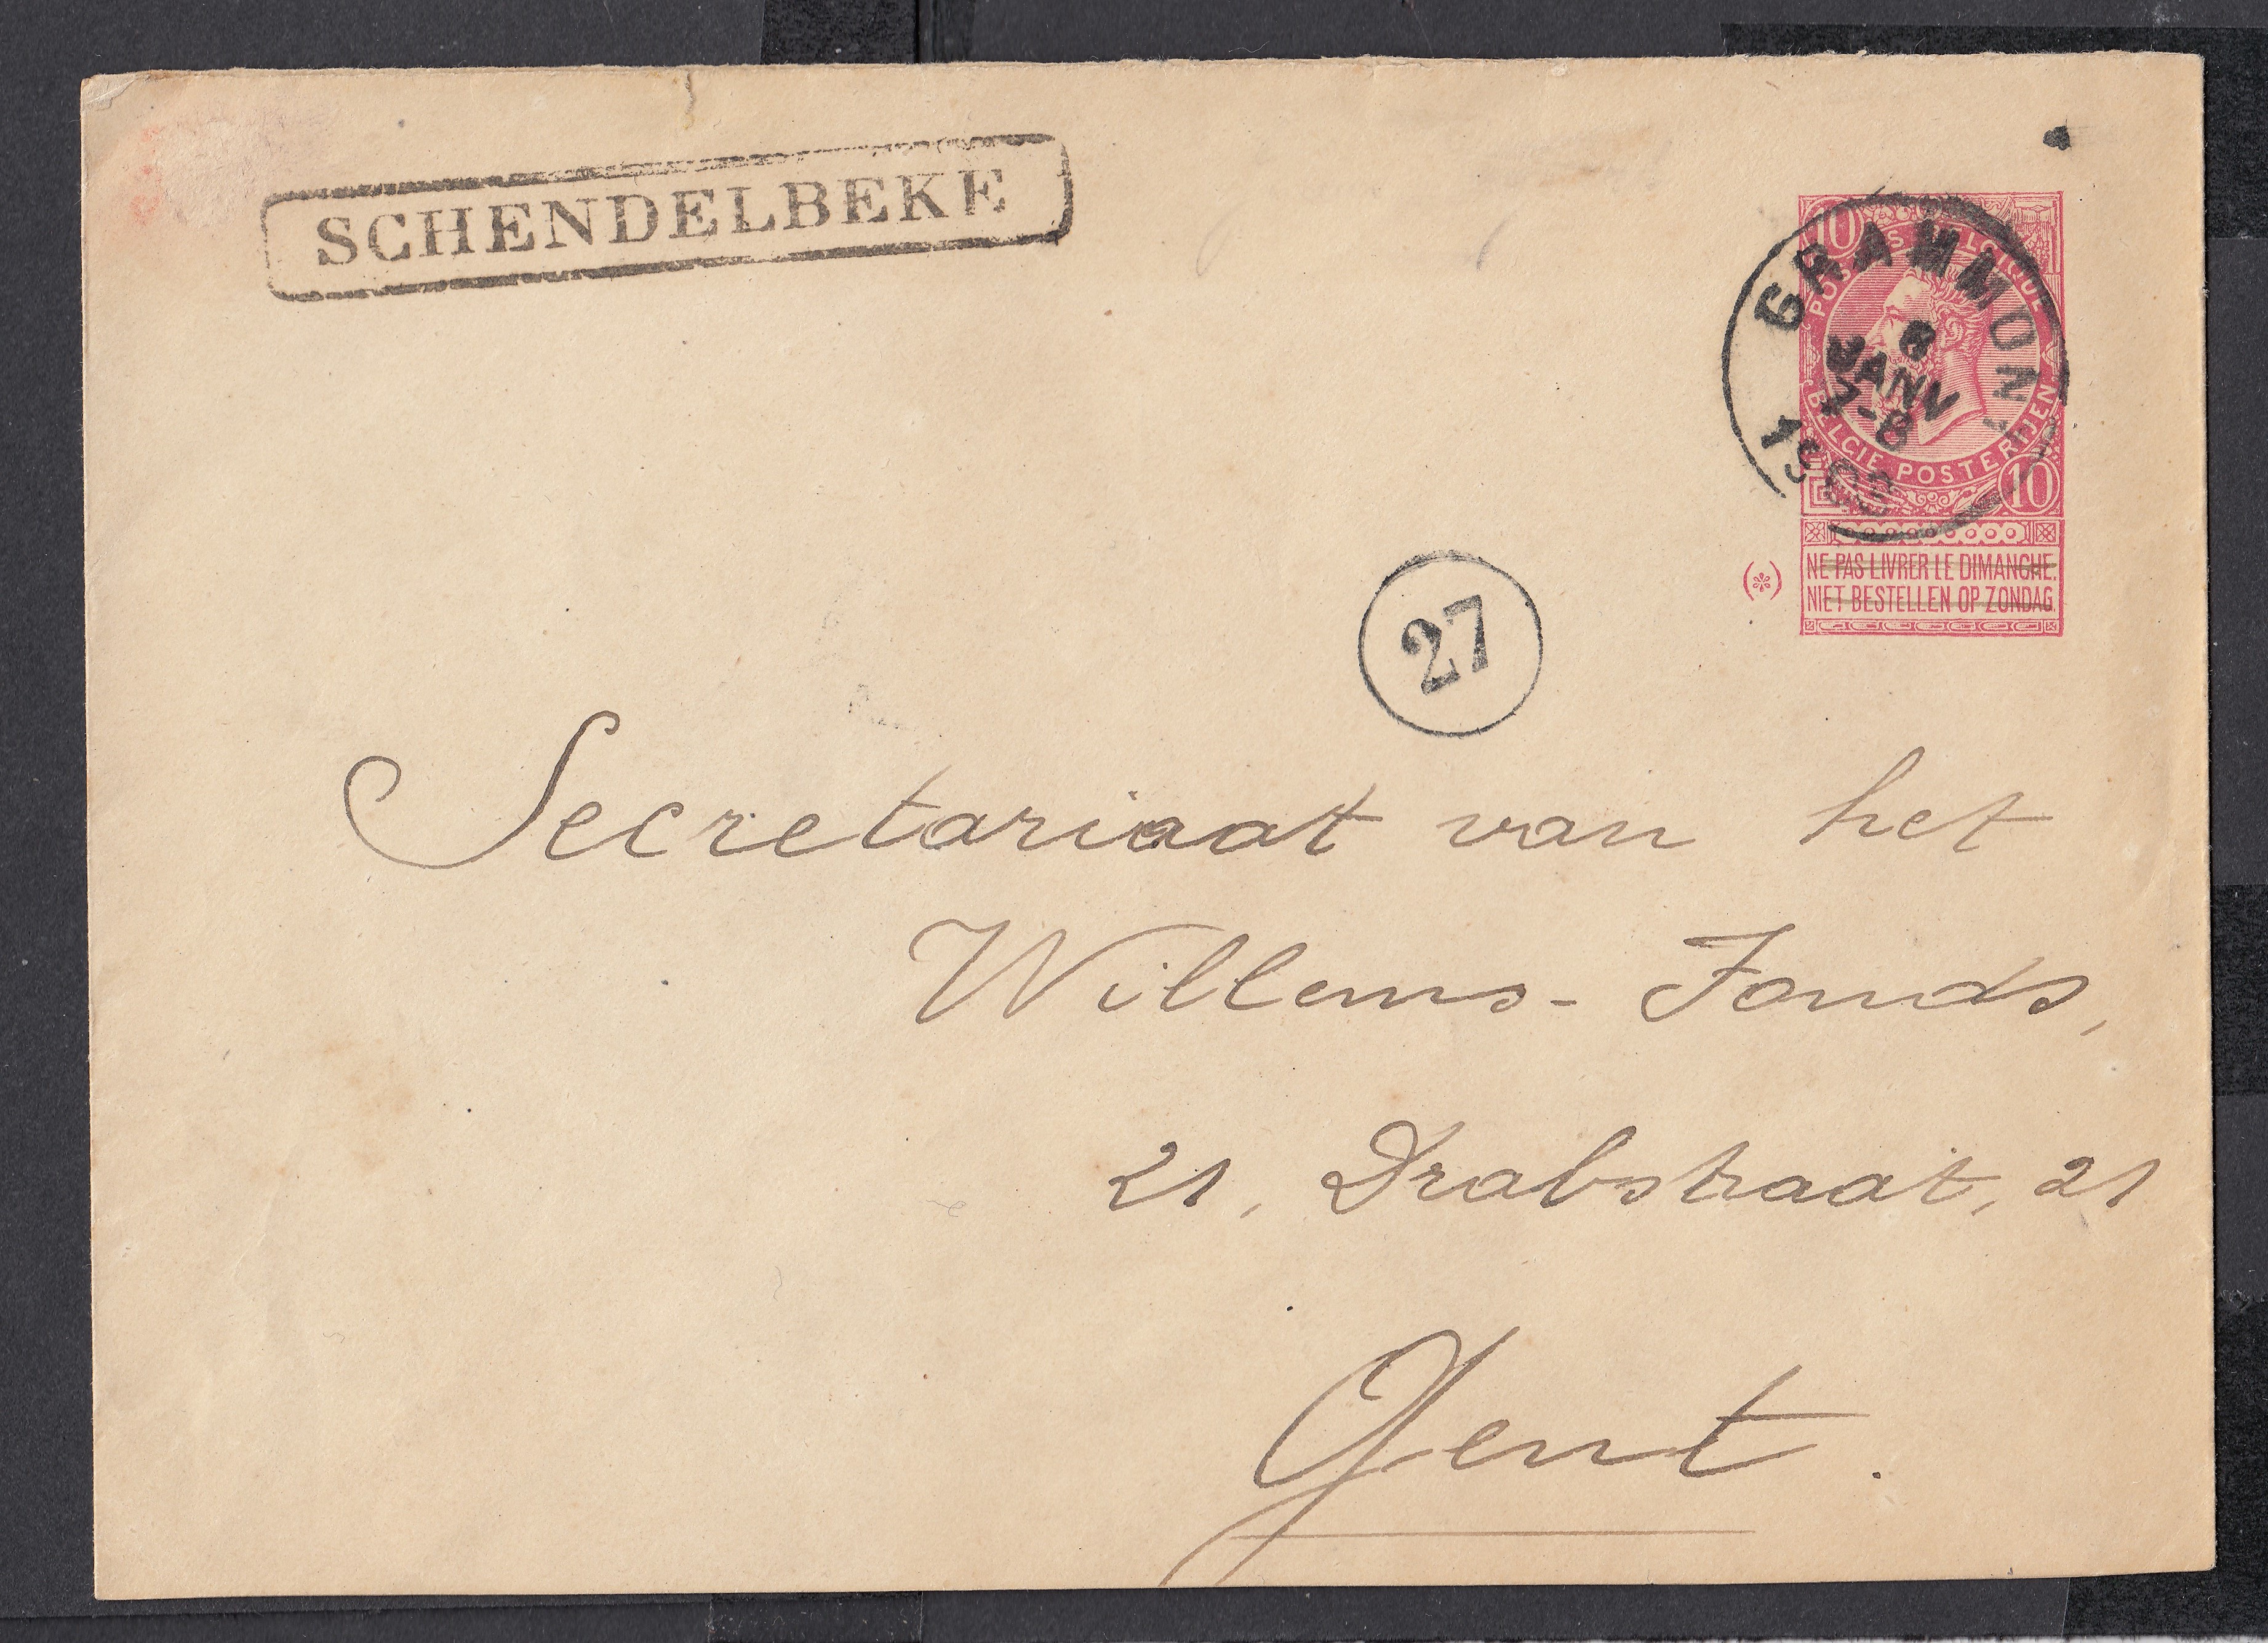 SCHENDELBEKE
10
POSTES BELGIQUE
GRAMMONT
8
JANV
7-8
BELGIE POSTERIJEN
10
NE PAS LIVRER LE DIMANCHE.
NIET BESTELLEN OP ZONDAG.
27
Secretariaat van het
Willems-Fonds,
21, Drabstraat, 21
Gent.